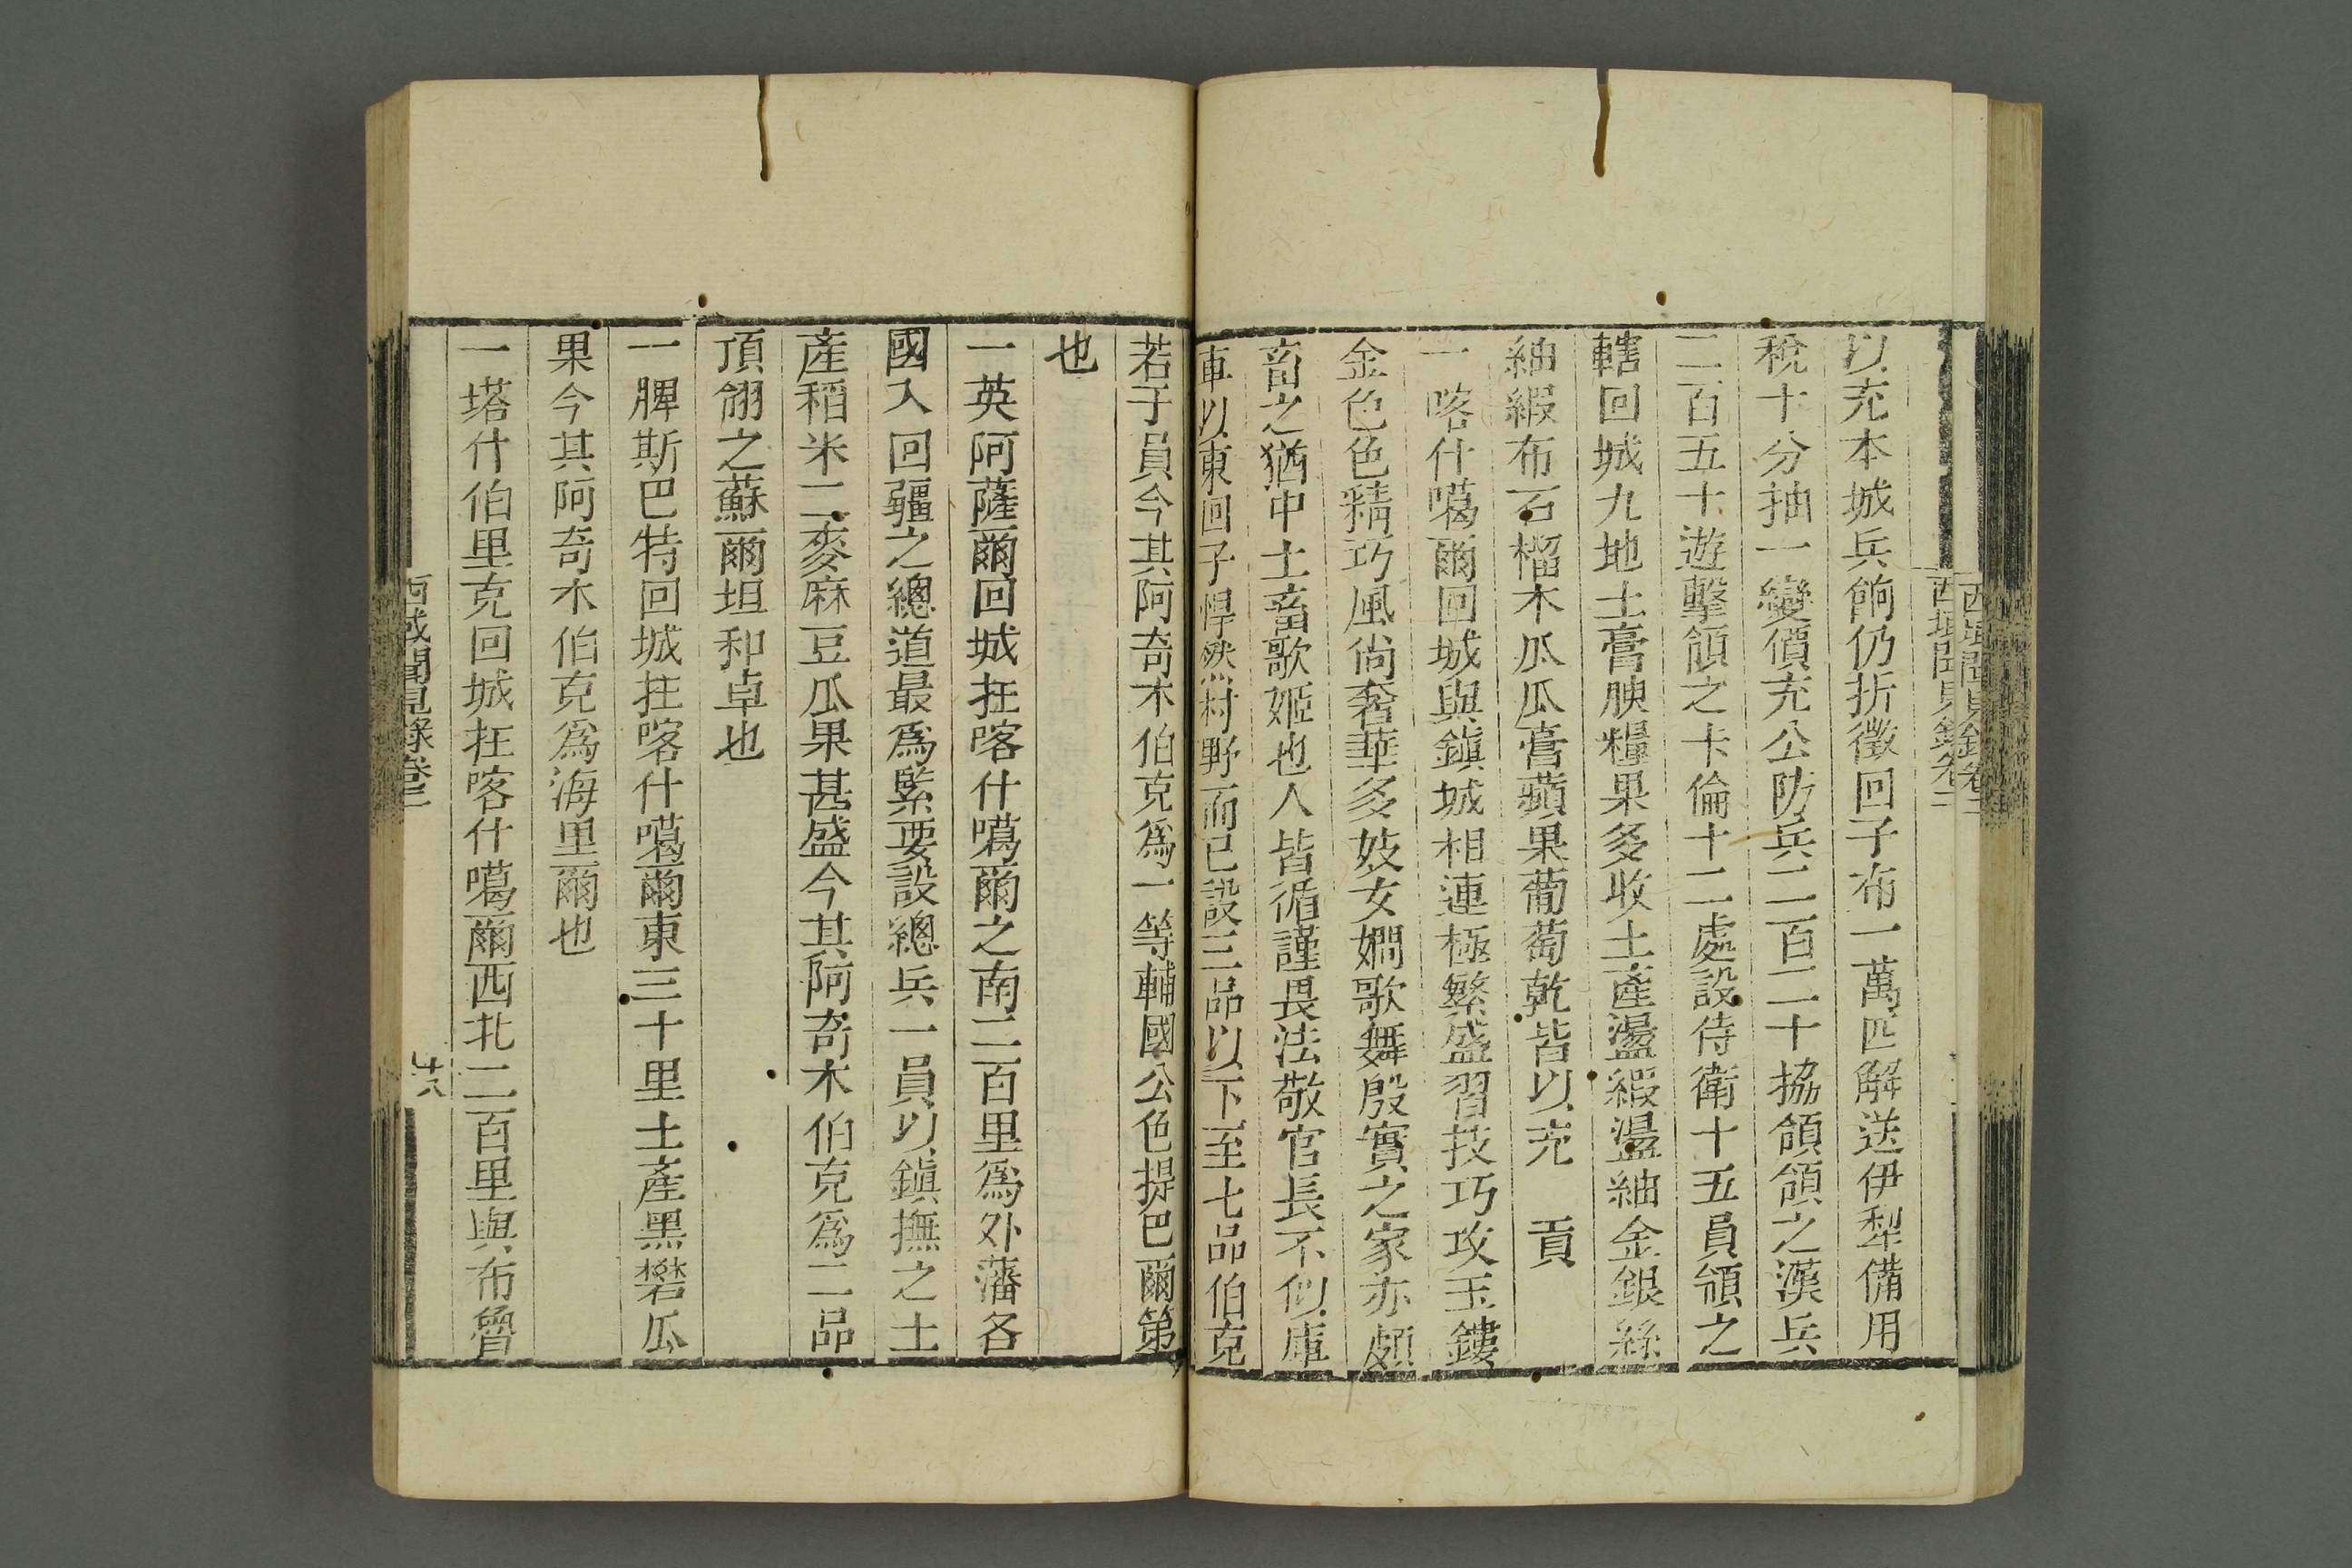 以充本城兵餉仍折徵回子布一萬匹解送伊犁備用
稅十分抽一變價充公防兵二百二十協領領之漢兵
二百五十遊擊領之卡倫十二處設侍衛十五員領之
轄回城九地土膏腴糧果多收土產盪緞盪紬金銀絲
紬緞布石榴木瓜瓜膏蘋果葡萄乾皆以充　貢
一喀什噶爾回城與鎮城相連極繁盛習技巧攻玉鏤
金色色精巧風尚奢華多妓女嫺歌舞殷實之家亦頗
畜之猶中土畜歌姬也人皆循謹畏法敬官長不似庫
車以東回子悍然村野而已設三品以下至七品伯克
若于員今其阿奇木伯克爲一等輔國公色提巴爾第
也
一英阿薩爾回城在喀什噶爾之南二百里爲外藩各
國入回疆之總道最爲緊要設總兵一員以鎮撫之土
產稻米二麥麻豆瓜果甚盛今其阿奇木伯克爲二品
頂翎之蘇爾坦和卓也
一脾斯巴特回城在喀什噶爾東三十里土產黑礬瓜
果今其阿奇木伯克爲海里爾也
一塔什伯里克回城在喀什噶爾西北二百里與布魯
西域聞見錄卷二
十八